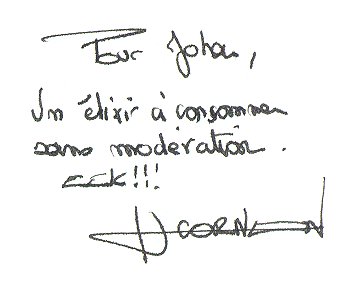 Pour Johan,
Un élixir à consommer
sans modération.
!!!